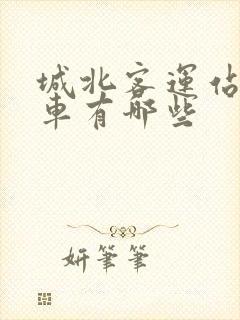 城北客運佔
車有哪些
妍筆筆